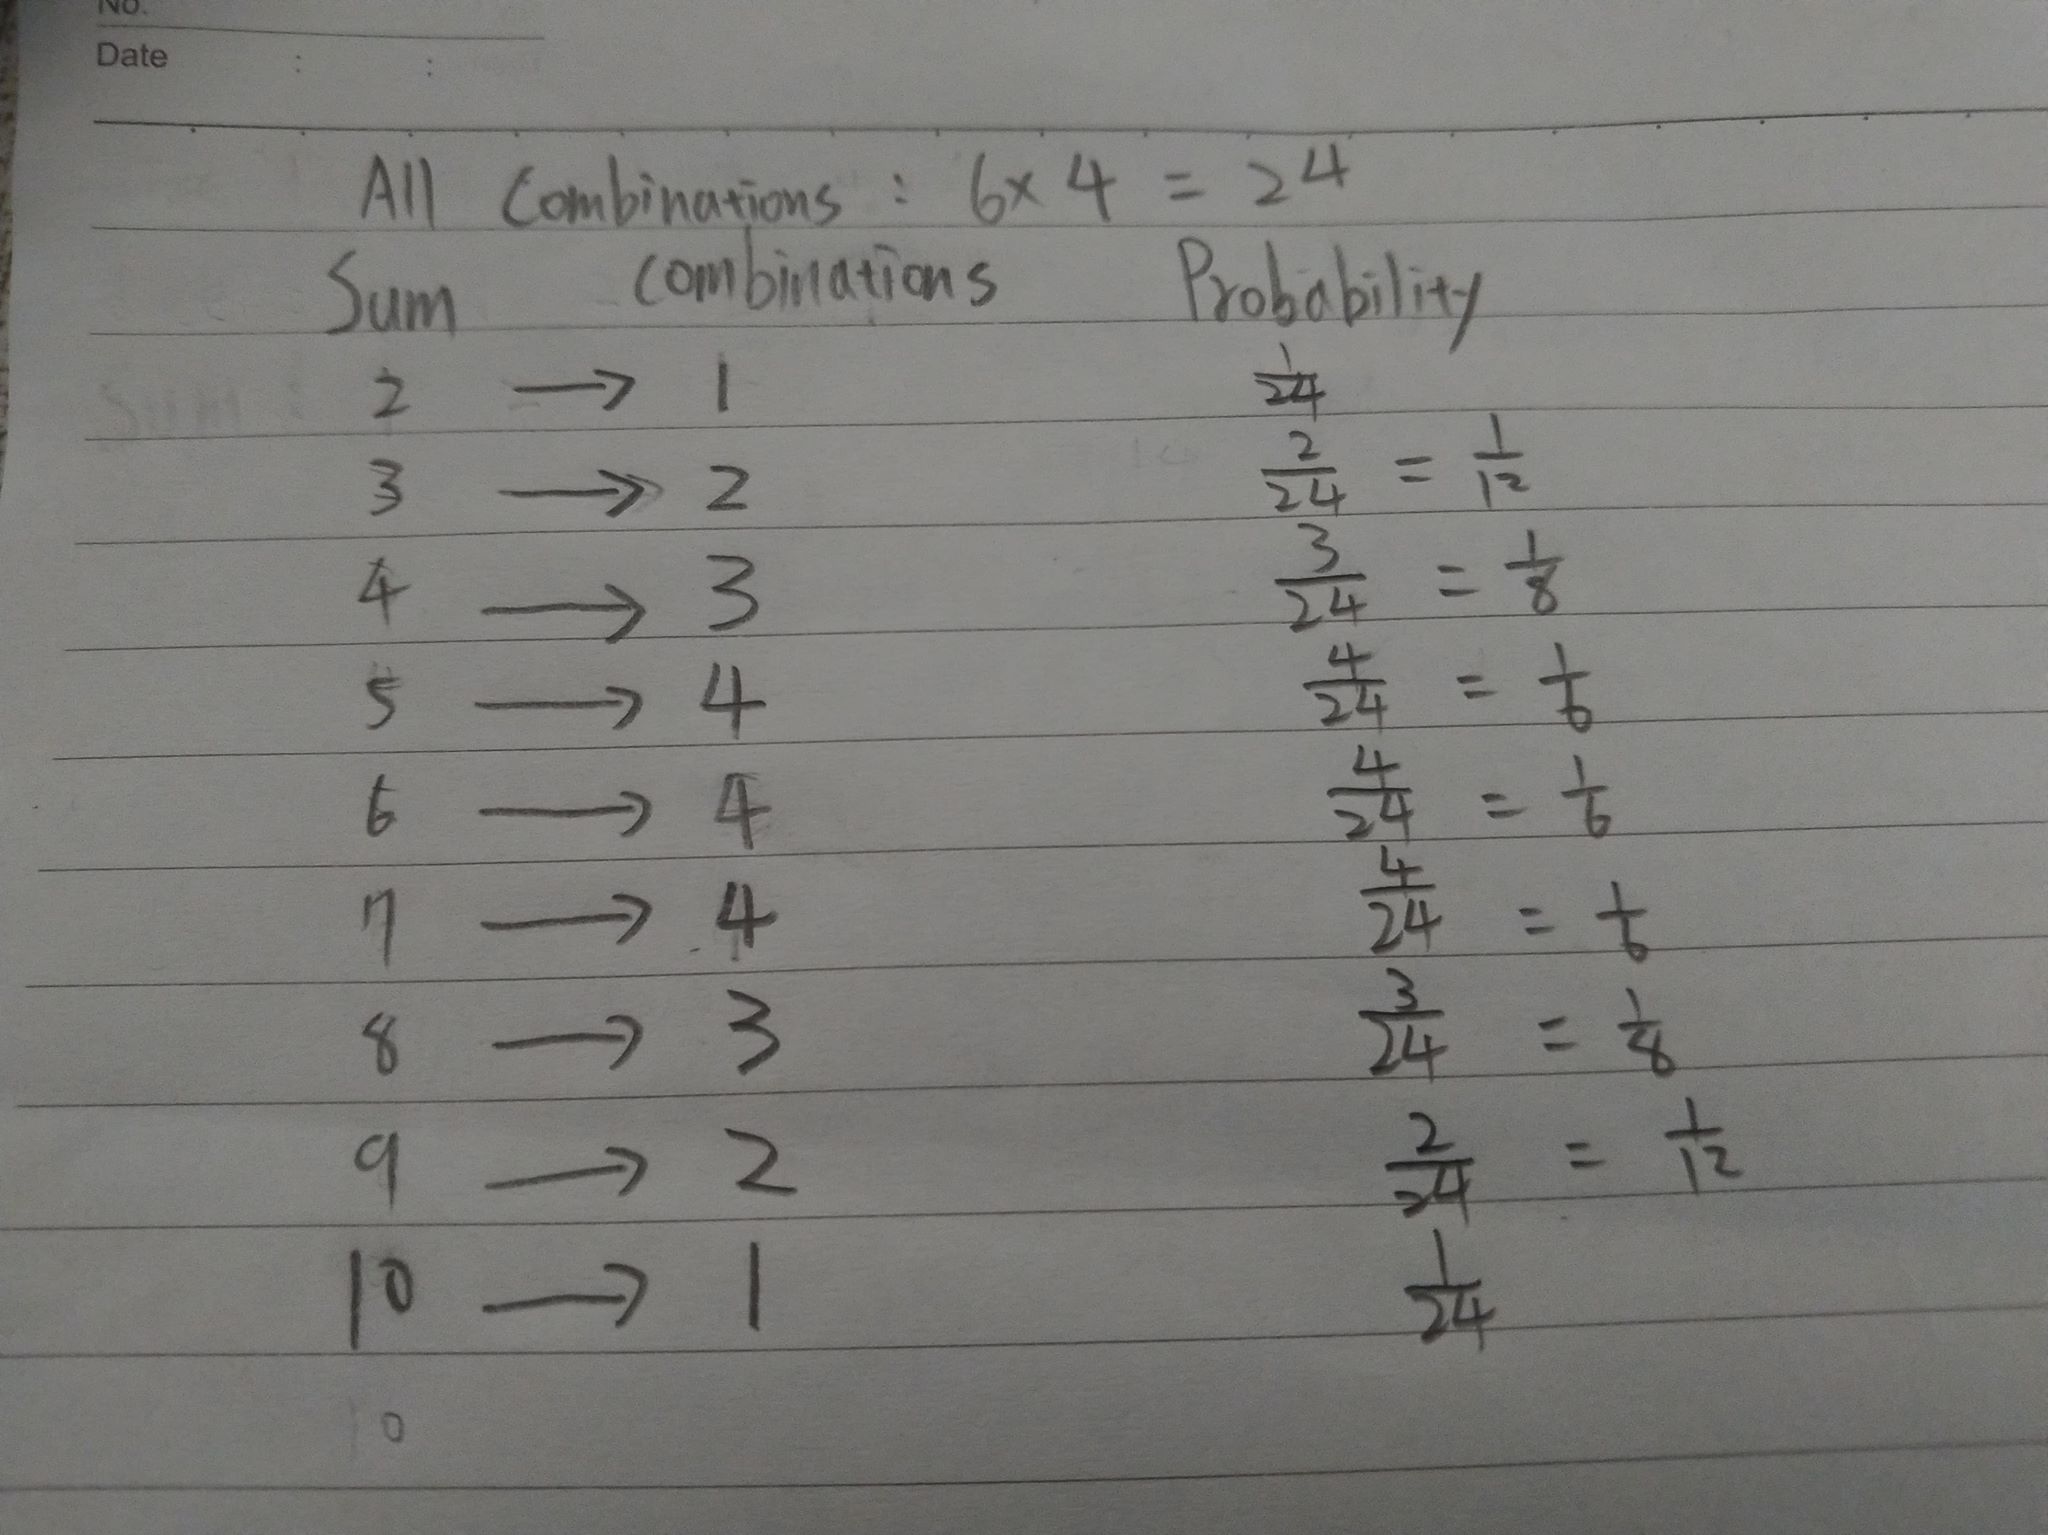 No.
Date : :
All Combinations : 6 x 4 = 24
Sum combinations Probability
2 → 1 1/24
3 → 2 2/24 = 1/12
4 → 3 3/24 = 1/8
5 → 4 4/24 = 1/6
6 → 4 4/24 = 1/6
7 → 4 4/24 = 1/6
8 → 3 3/24 = 1/8
9 → 2 2/24 = 1/12
10 → 1 1/24
10